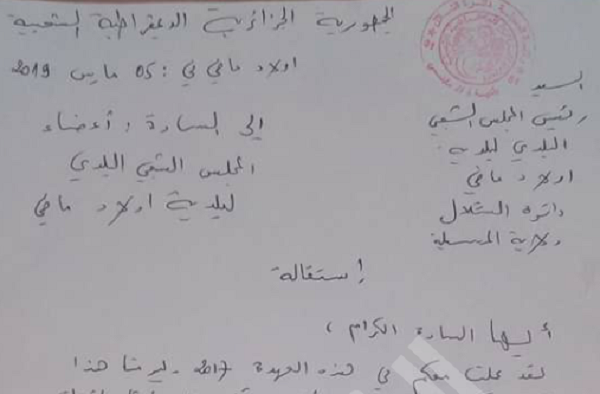 الجمهورية الجزائرية الديمقراطية الشعبية
اولاد ماضي في : 05 مارس 2019
السيد
رئيس المجلس الشعبي
البلدي لبلدية
اولاد ماضي
دائرة الشلال
ولاية المسيلة
إلى السادة / أعضاء
المجلس الشعبي البلدي
لبلدية اولاد ماضي
إستقالة
أيها السادة الكرام ،
لقد عملت معكم في هذه العهدة 2017 هذا